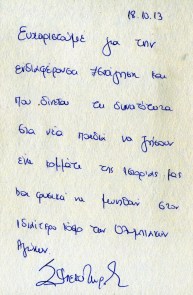 18.10.13
Ευχαριστούμε για την
ενδιαφέρουσα ξενάγηση και
που δίνεται τη δυνατότητα
στα νέα παιδιά να ζήσουν
ένα κομμάτι της ιστορίας μας
και φυσικά να μυηθούν στον
ιδιαίτερο κόσμο των Ολυμπιακών
Αγώνων